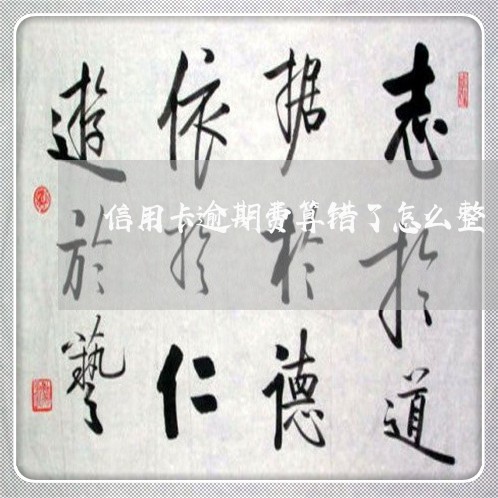 志於道
据於德
依於仁
遊於藝
信用卡逾期费算错了怎么整